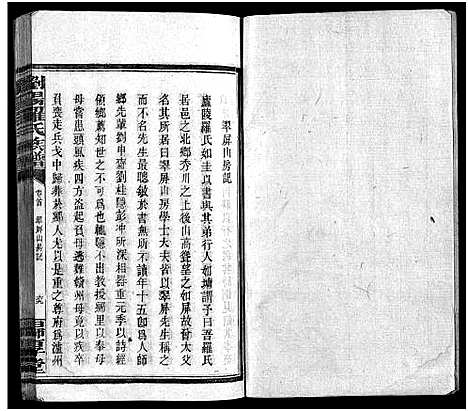 翠屏山房記
廬陵羅氏如圭以書與其弟行人如墉謂予曰吾羅氏
居邑之北鄉秀川之上後山高聳望之如屏故曾大父
自號其居曰翠屏山房學士大夫皆以翠屏先生稱之
而不名先生最聰敏於書無所不讀年十五即爲人師
鄉先輩劉申齋劉桂隱彭沖所深相器重元季以詩經
領鄉薦知世之不可爲也輒隱不出以奉母
母嘗患頭風疾四方盜起召母遇難贛州母竟以疾卒
負喪走兵戈中歸葬於羅人尤以是重之尊府爲瀘州
瀏陽羅氏族譜
卷首
翠屏山房記